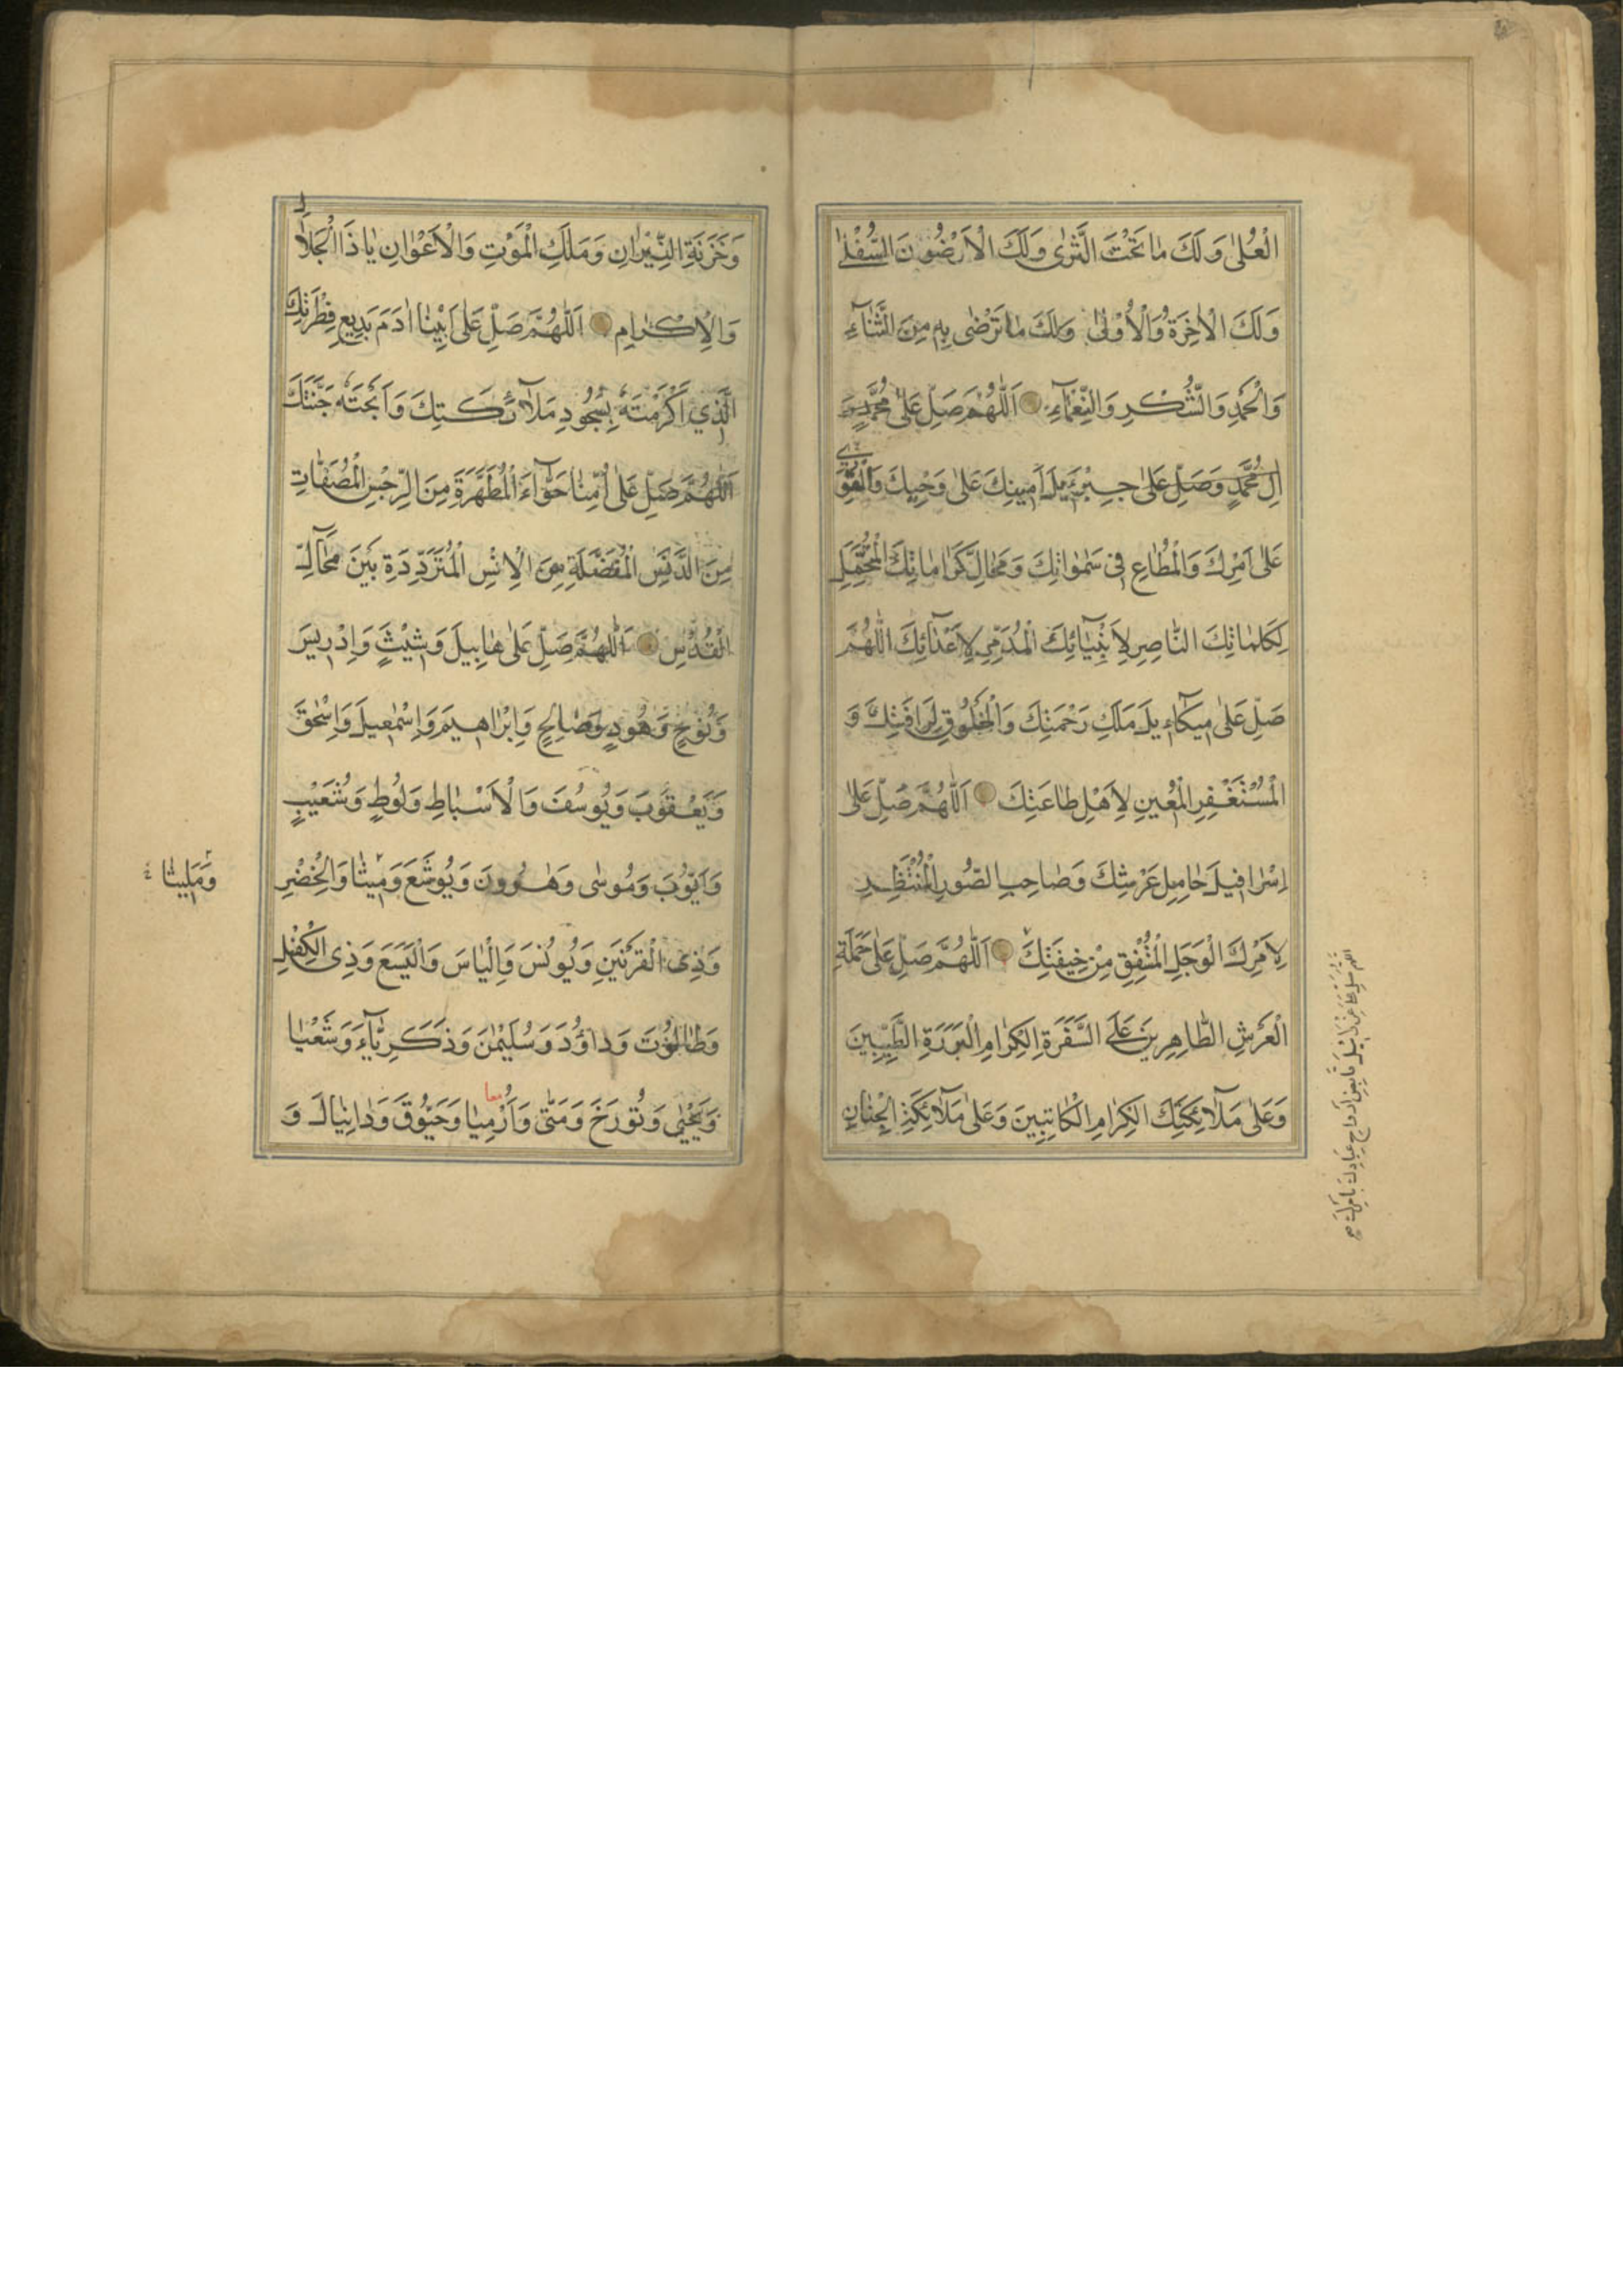 الْعُلىٰ وَلَكَ مٰا تَحْتَ الثَّرىٰ وَلَكَ الْاَرَضُونَ السُّفْلىٰ
وَلَكَ الْاٰخِرَةُ وَالْاُوْلىٰ وَلَكَ مٰا تَرْضٰى بِهِ مِنَ الثَّنٰآءِ
وَالْحَمْدِ وَالشُّكْرِ وَالنَّعْمٰآءِ اَللّٰهُمَّ صَلِّ عَلىٰ مُحَمَّدٍ وَ
اٰلِ مُحَمَّدٍ وَصَلِّ عَلىٰ جِبْرَئِيلَ اَمِينِكَ عَلىٰ وَحْيِكَ وَالْقَوِيِّ
عَلىٰ اَمْرِكَ وَالْمُطٰاعِ فى سَمٰوٰاتِكَ وَمَحٰالِّ كَرٰامٰاتِكَ الْمُتَحَمِّلِ
لِكَلِمٰاتِكَ النّٰاصِرِ لِاَنْبِيٰآئِكَ الْمُدَمِّرِ لِاَعْدٰآئِكَ اَللّٰهُمَّ
صَلِّ عَلىٰ مِيكٰآءِيلَ مَلَكِ رَحْمَتِكَ وَالْمَخْلُوقِ لِرَافَتِكَ وَ
الْمُسْتَغْفِرِ الْمُعِينِ لِاَهْلِ طٰاعَتِكَ اَللّٰهُمَّ صَلِّ عَلىٰ
اِسْرٰافِيلَ حٰامِلِ عَرْشِكَ وَصٰاحِبِ الصُّورِ الْمُنْتَظِرِ
لِاَمْرِكَ الْوَجِلِ الْمُشْفِقِ مِنْ خِيفَتِكَ اَللّٰهُمَّ صَلِّ عَلىٰ حَمَلَةِ
الْعَرْشِ الطّٰاهِرِينَ وَعَلَى السَّفَرَةِ الْكِرٰامِ الْبَرَرَةِ الطَّيِّبِينَ
وَعَلىٰ مَلٰآئِكَتِكَ الْكِرٰامِ الْكٰاتِبِينَ وَعَلىٰ مَلٰآئِكَةِ الْجِنٰانِ
وَخَزَنَةِ النِّيرٰانِ وَمَلَكِ الْمَوْتِ وَالْاَعْوٰانِ يٰا ذَا الْجَلاٰلِ
وَالْاِكْرٰامِ اَللّٰهُمَّ صَلِّ عَلىٰ اَبِينٰا اٰدَمَ بَدِيعِ فِطْرَتِكَ
الَّذِي اَكْرَمْتَهُ بِسُجُودِ مَلٰآئِكَتِكَ وَاَبَحْتَهُ جَنَّتَكَ
اَللّٰهُمَّ صَلِّ عَلىٰ اُمِّنٰا حَوّٰآءَ الْمُطَهَّرَةِ مِنَ الرِّجْسِ الْمُصَفّٰاتِ
مِنَ الدَّنَسِ الْمُفَضَّلَةِ مِنَ الْاِنْسِ الْمُتَرَدِّدَةِ بَيْنَ مَحٰآلِّ
الْقُدْسِ اَللّٰهُمَّ صَلِّ عَلىٰ هٰابِيلَ وَشِيْثٍ وَاِدْرِيسَ
وَنُوحٍ وَهُودٍ وَصٰالِحٍ وَاِبْرٰاهِيمَ وَاِسْمٰعِيلَ وَاِسْحٰقَ
وَيَعْقُوبَ وَيُوسُفَ وَالْاَسْبٰاطِ وَلُوطٍ وَشُعَيْبٍ
وَاَيُّوبَ وَمُوسٰى وَهٰرُونَ وَيُوشَعَ وَمِيشٰا وَالْخِضْرِ
وَمَلِيشٰا
وَذِى الْقَرْنَيْنِ وَيُونُسَ وَاِلْيٰاسَ وَالْيَسَعَ وَذِى الْكِفْلِ
وَطٰالُوتَ وَدٰاوُدَ وَسُلَيْمٰنَ وَذَكَرِيّٰآءَ وَشَعْيٰا
معا
وَيَحْيٰى وَتُورَخَ وَمَتّٰى وَاَرْمِيٰا وَحَيْقُوقَ وَدٰانِيٰالَ وَ